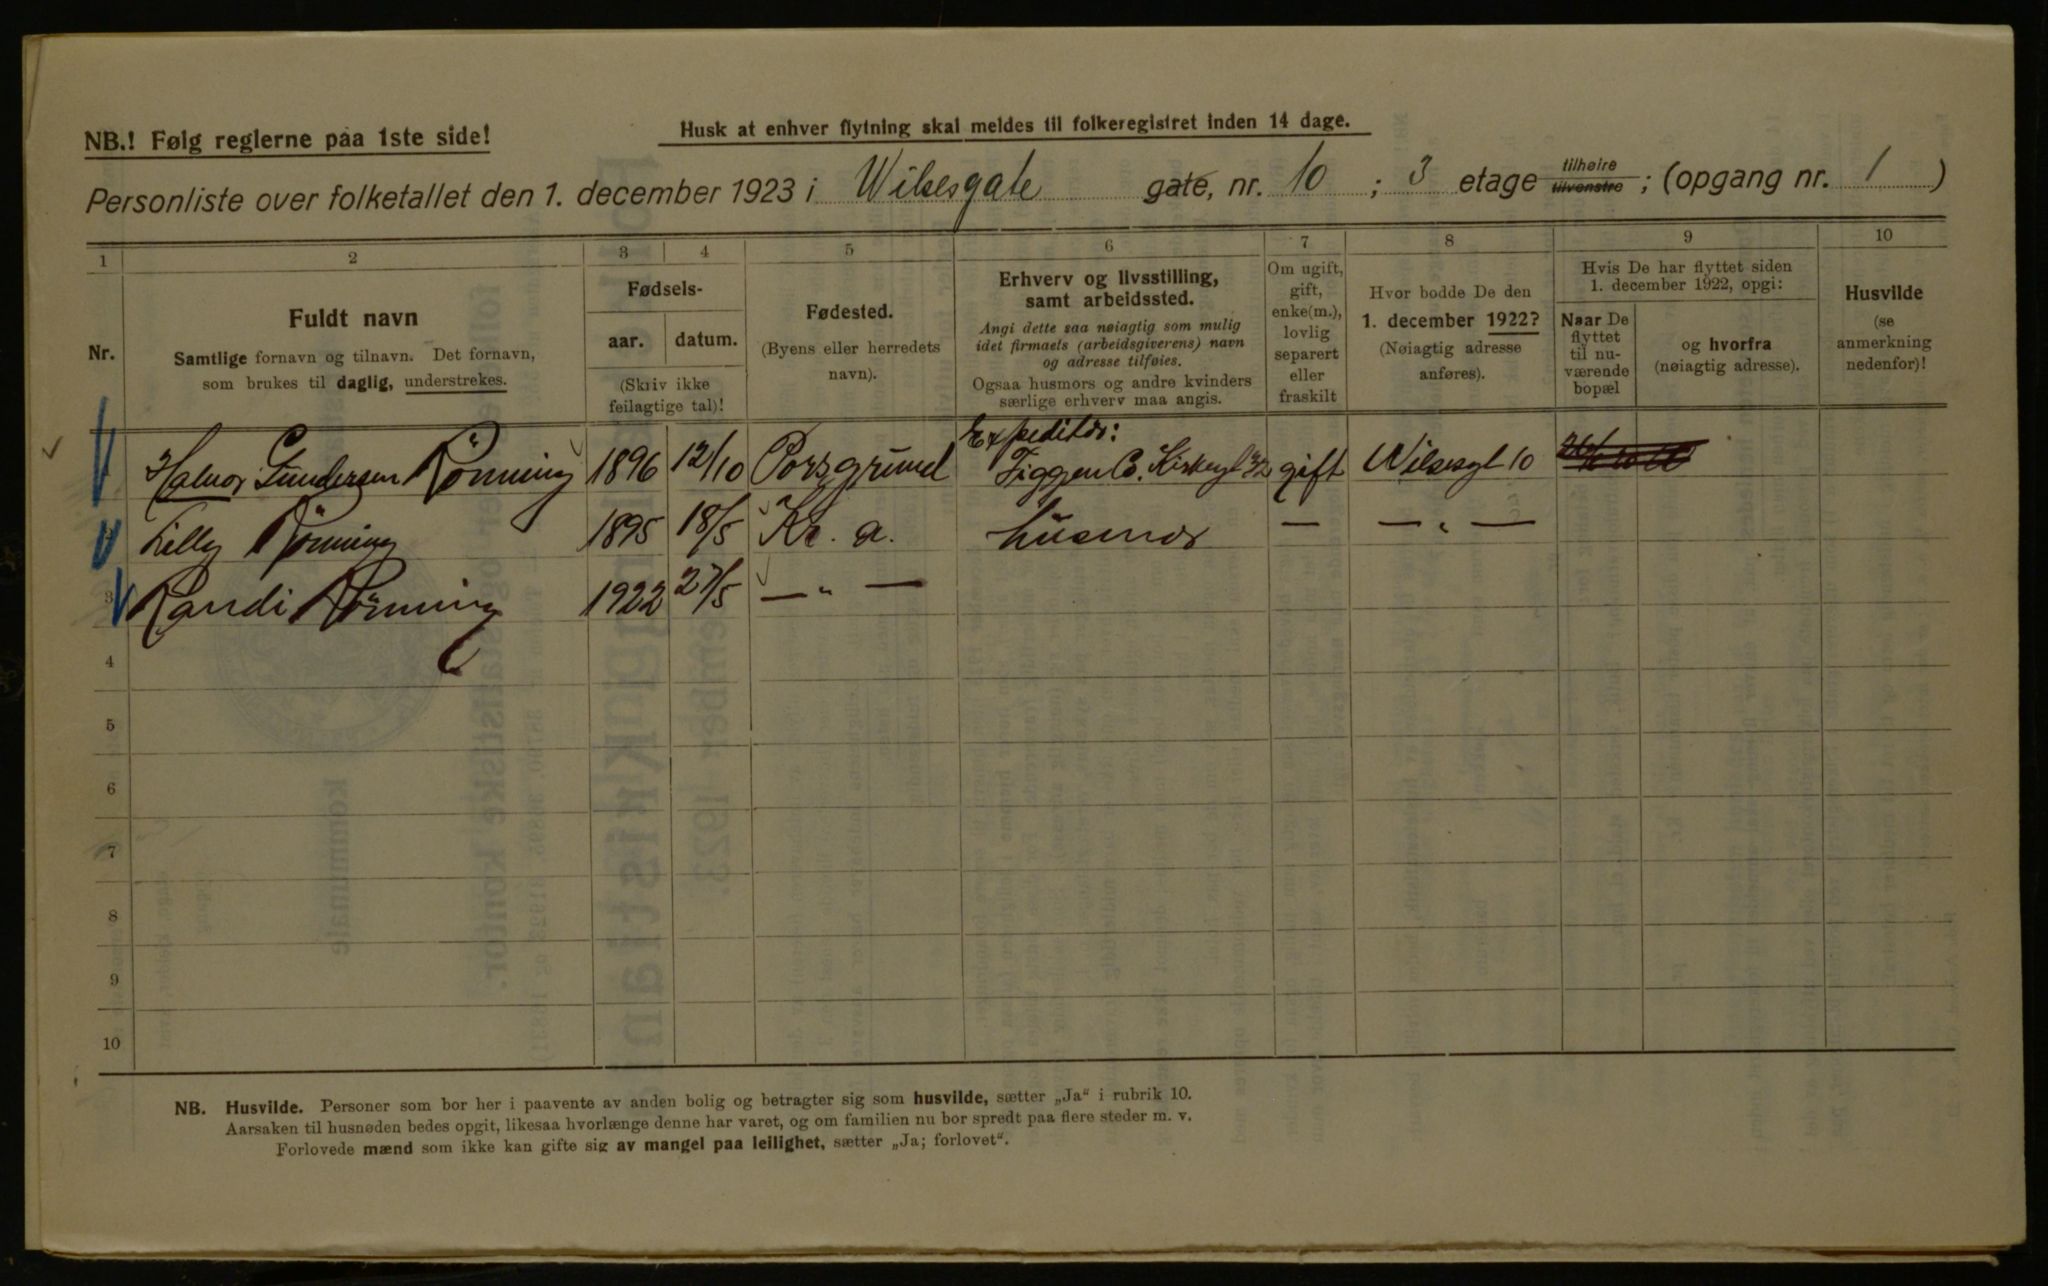 NB.! Følg reglerne paa 1ste side!
Husk at enhver flytning skal meldes til folkeregistret inden 14 dage.
Personliste over folketallet den 1. december 1923 i Wilsesgate gate, nr. 10 ; 3 etage tilhøire tilvenstre ; (opgang nr. 1 )
1 2 3 4 5 6 7 8 9 10
Nr.
Fuldt navn
Samtlige fornavn og tilnavn. Det fornavn,
som brukes til daglig, understrekes.
Fødsels-
aar. datum.
(Skriv ikke
feilagtige tal)!
Fødested.
(Byens eller herredets
navn).
Erhverv og livsstilling,
samt arbeidssted.
Angi dette saa nøiagtig som mulig
idet firmaets (arbeidsgiverens) navn
og adresse tilføies.
Ogsaa husmors og andre kvinders
særlige erhverv maa angis.
Om ugift,
gift,
enke(m.),
lovlig
separert
eller
fraskilt
Hvor bodde De den
1. december 1922?
(Nøiagtig adresse
anføres).
Hvis De har flyttet siden
1. december 1922, opgi:
Naar De
flyttet
til nu-
værende
bopæl
og hvorfra
(nøiagtig adresse).
Husvilde
(se
anmerkning
nedenfor)!
Expeditør:
Halvor Gundersen Rönning 1896 12/10 Porsgrund Co. gift Wilsesgt 10
Lilly Rönning 1895 18/5 Kr. a. husmor — — „ —
3 Randi Rönning 1922 27/5 — „ —
4
5
6
7
8
9
10
NB. Husvilde. Personer som bor her i paavente av anden bolig og betragter sig som husvilde, sætter „Ja“ i rubrik 10.
Aarsaken til husnøden bedes opgit, likesaa hvorlænge denne har varet, og om familien nu bor spredt paa flere steder m. v.
Forlovede mænd som ikke kan gifte sig av mangel paa leilighet, sætter „Ja; forlovet“.